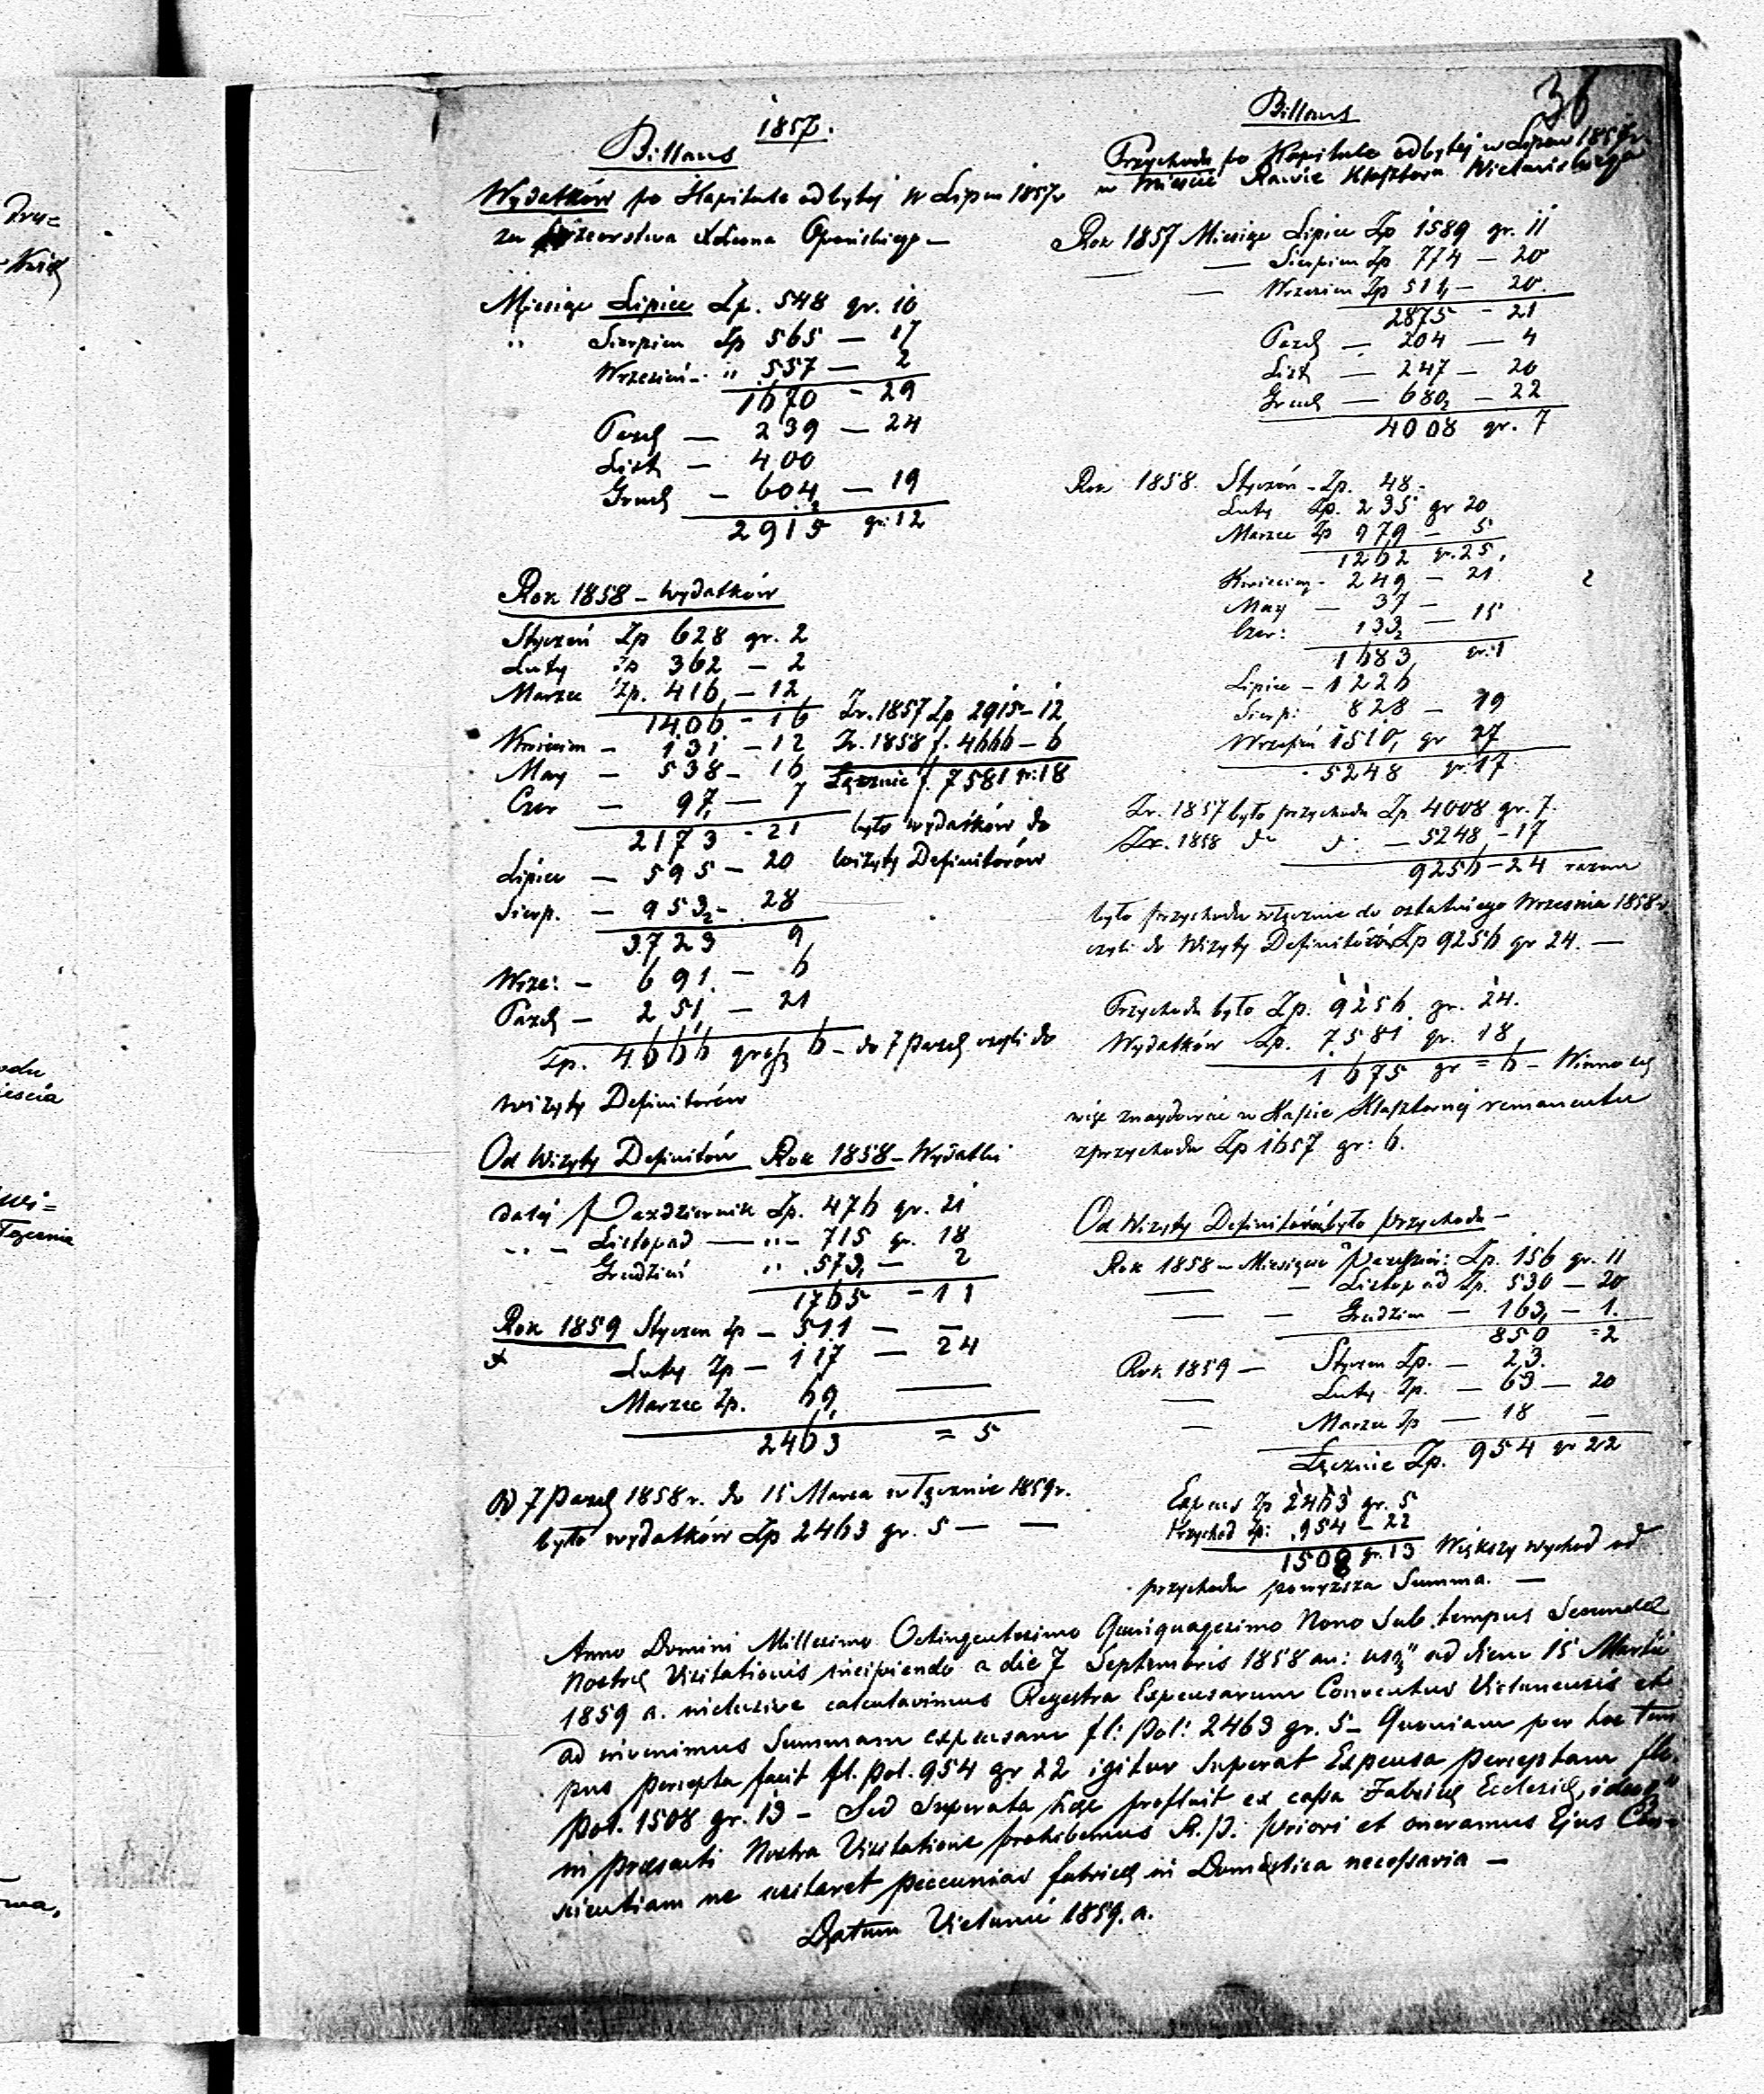 36
1857.
Billans
Wydatków po Kapitule odbytej w Lipcu 1857 r
za
Miesiąc Lipiec Zp. 548 gr. 10
" Sierpień Zp 565 — 17
Wrzesień - " 557 — 2
1670 - 29
Pazd — 239 — 24
List — 400
Grud — 604 — 19
2915 gr: 12
Rok 1858 - wydatków
Styczeń Zp 628 gr. 2
Luty Zp 362 — 2
Marzec Zp. 416 — 12
1406 - 16
Kwiecien — 131 — 12
May — 538 — 16
Czer — 97 — 7
2173 - 21
Lipiec — 595 — 20
Sierp. — 953 - 28
3723 9
Wrze: — 691. — 6
Pazd — 251 — 21
Zp. 4666 grosz 6 - do 7 Pazd czyli do
wizyty Definitorów
Z r. 1857 Zp 2915 - 12
Z r. 1858 f. 4666 - 6
Łącznie f. 7581 gr: 18
było wydatków do
wizyty Definitorów
Od Wizyty Definitów Rok 1858 - Wydatki
dalej Pazdziernik Zp. 476 gr. 21
" — Listopad — " — 715 gr. 18
Grudzień " . 573 — 2
1765 - 11
Rok 1859 Styczen Zp — 511 — —
Luty Zp — 117 — 24
Marzec Zp. 69 —
2463 = 5
Od 7 Pazd 1858 r. do 15 Marca włącznie 1859 r.
było wydatków Zp 2463 gr. 5 — —
Billans
Przychodu po Kapitule odbytej w Lipcu 1857 r.
w mieście Rawie Klasztora
Rok 1857 Miesiąc Lipiec Zp 1589 gr. 11
— — Sierpien Zp 774 — 20
— Wrzesien Zp 511 — 20.
2875 - 21
Pazd — 204 — 4
List — 247 — 20
Grud — 680 — 22
4008 gr. 7
Rok 1858. Styczeń - Zp. 48 -
Luty Zp. 235 gr 20
Marzec Zp 979 — 5
1262 gr. 25
Kwiecien - 249 — 21.
May — 37 —
Czer: 133 — 15
1683 gr: 1
Lipiec — 1226
Sierp: 828 — 19
Wrzesień 1510, gr 27
5248 gr: 17
Z r. 1857 było przychodu Zp. 4008 gr. 7.
Z r. 1858 do — 5248 - 17
9256 - 24 razem
było przychodu włącznie do ostatniego Wrzesnia 1858 r
czyli do Wizyty Definitorów Zp 9256 gr 24. —
Przychodu było Zp. 9256 gr. 24.
Wydatków Zp. 7581 gr. 18
1675 gr = 6 - Winno się
więc znaydować w Kassie Klasztornej remanentu
z przychodu Zp 1657 gr: 6.
Od Wizyty Definitorów było przychodu —
Rok 1858 — Miesiącu Pazdzier: Zp. 156 gr. 11
— — Listopad Zp. 530 — 20
— — Grudzien — 163 — 1.
850 = 2
Rok 1859 — Styczen Zp. — 23.
— Luty Zp. — 63 — 20
— Marzec Zp — 18 —
Łącznie Zp. 954 gr 22
Expens Zp 2463 gr. 5
Przychod Zp: 954 — 22
1508 gr. 13 Większy wychod od
przychodu powyższa Summa. —
Anno Domini Millesimo Octingentesimo Quinquagesimo Nono Sub tempus Secundæ
Nostræ Visitationis incipiendo a die 7 Septembris 1858 an: usq" ad diem 15 Martii
1859 a. inclusive calculavimus Regestra Expensarum Conventus Vietunensis et
ad invenimus Summam expensam fl: pol: 2463 gr. 5 — Quoniam per hoc tem
pus percepta facit fl. pol. 954 gr 22 igitur Superat Expensa perceptam fl.
pol. 1508 gr. 13 — Sed Superata hæc profluit ex cassa Fabricæ Ecclesiæ, ideoq"
in præsenti Nostra Visitatione prohibemus R. P. Priori et oneramus Ejus Con-
scientiam ne usitaret peccunias fabricæ in Domestica necessaria —
Datum 1859. a.